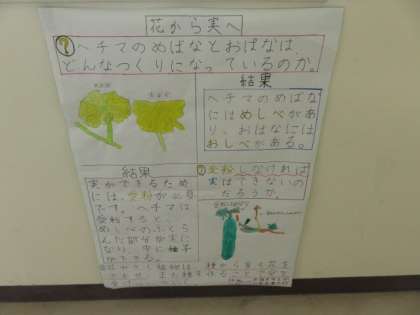 花から実へ
?ヘチマのめばなとおばなは、
どんなつくりになっているのか。
結果
ヘチマのめばな
にはめしべがあ
り、おばなには
おしべがある。
結果
実ができるため
には、受粉が必要
です。ヘチマは
受粉すると、
めしべのふくら
んだ部分が実に
なり、中に種子
ができる。
?受粉しなければ
実はできないの
だろうか。